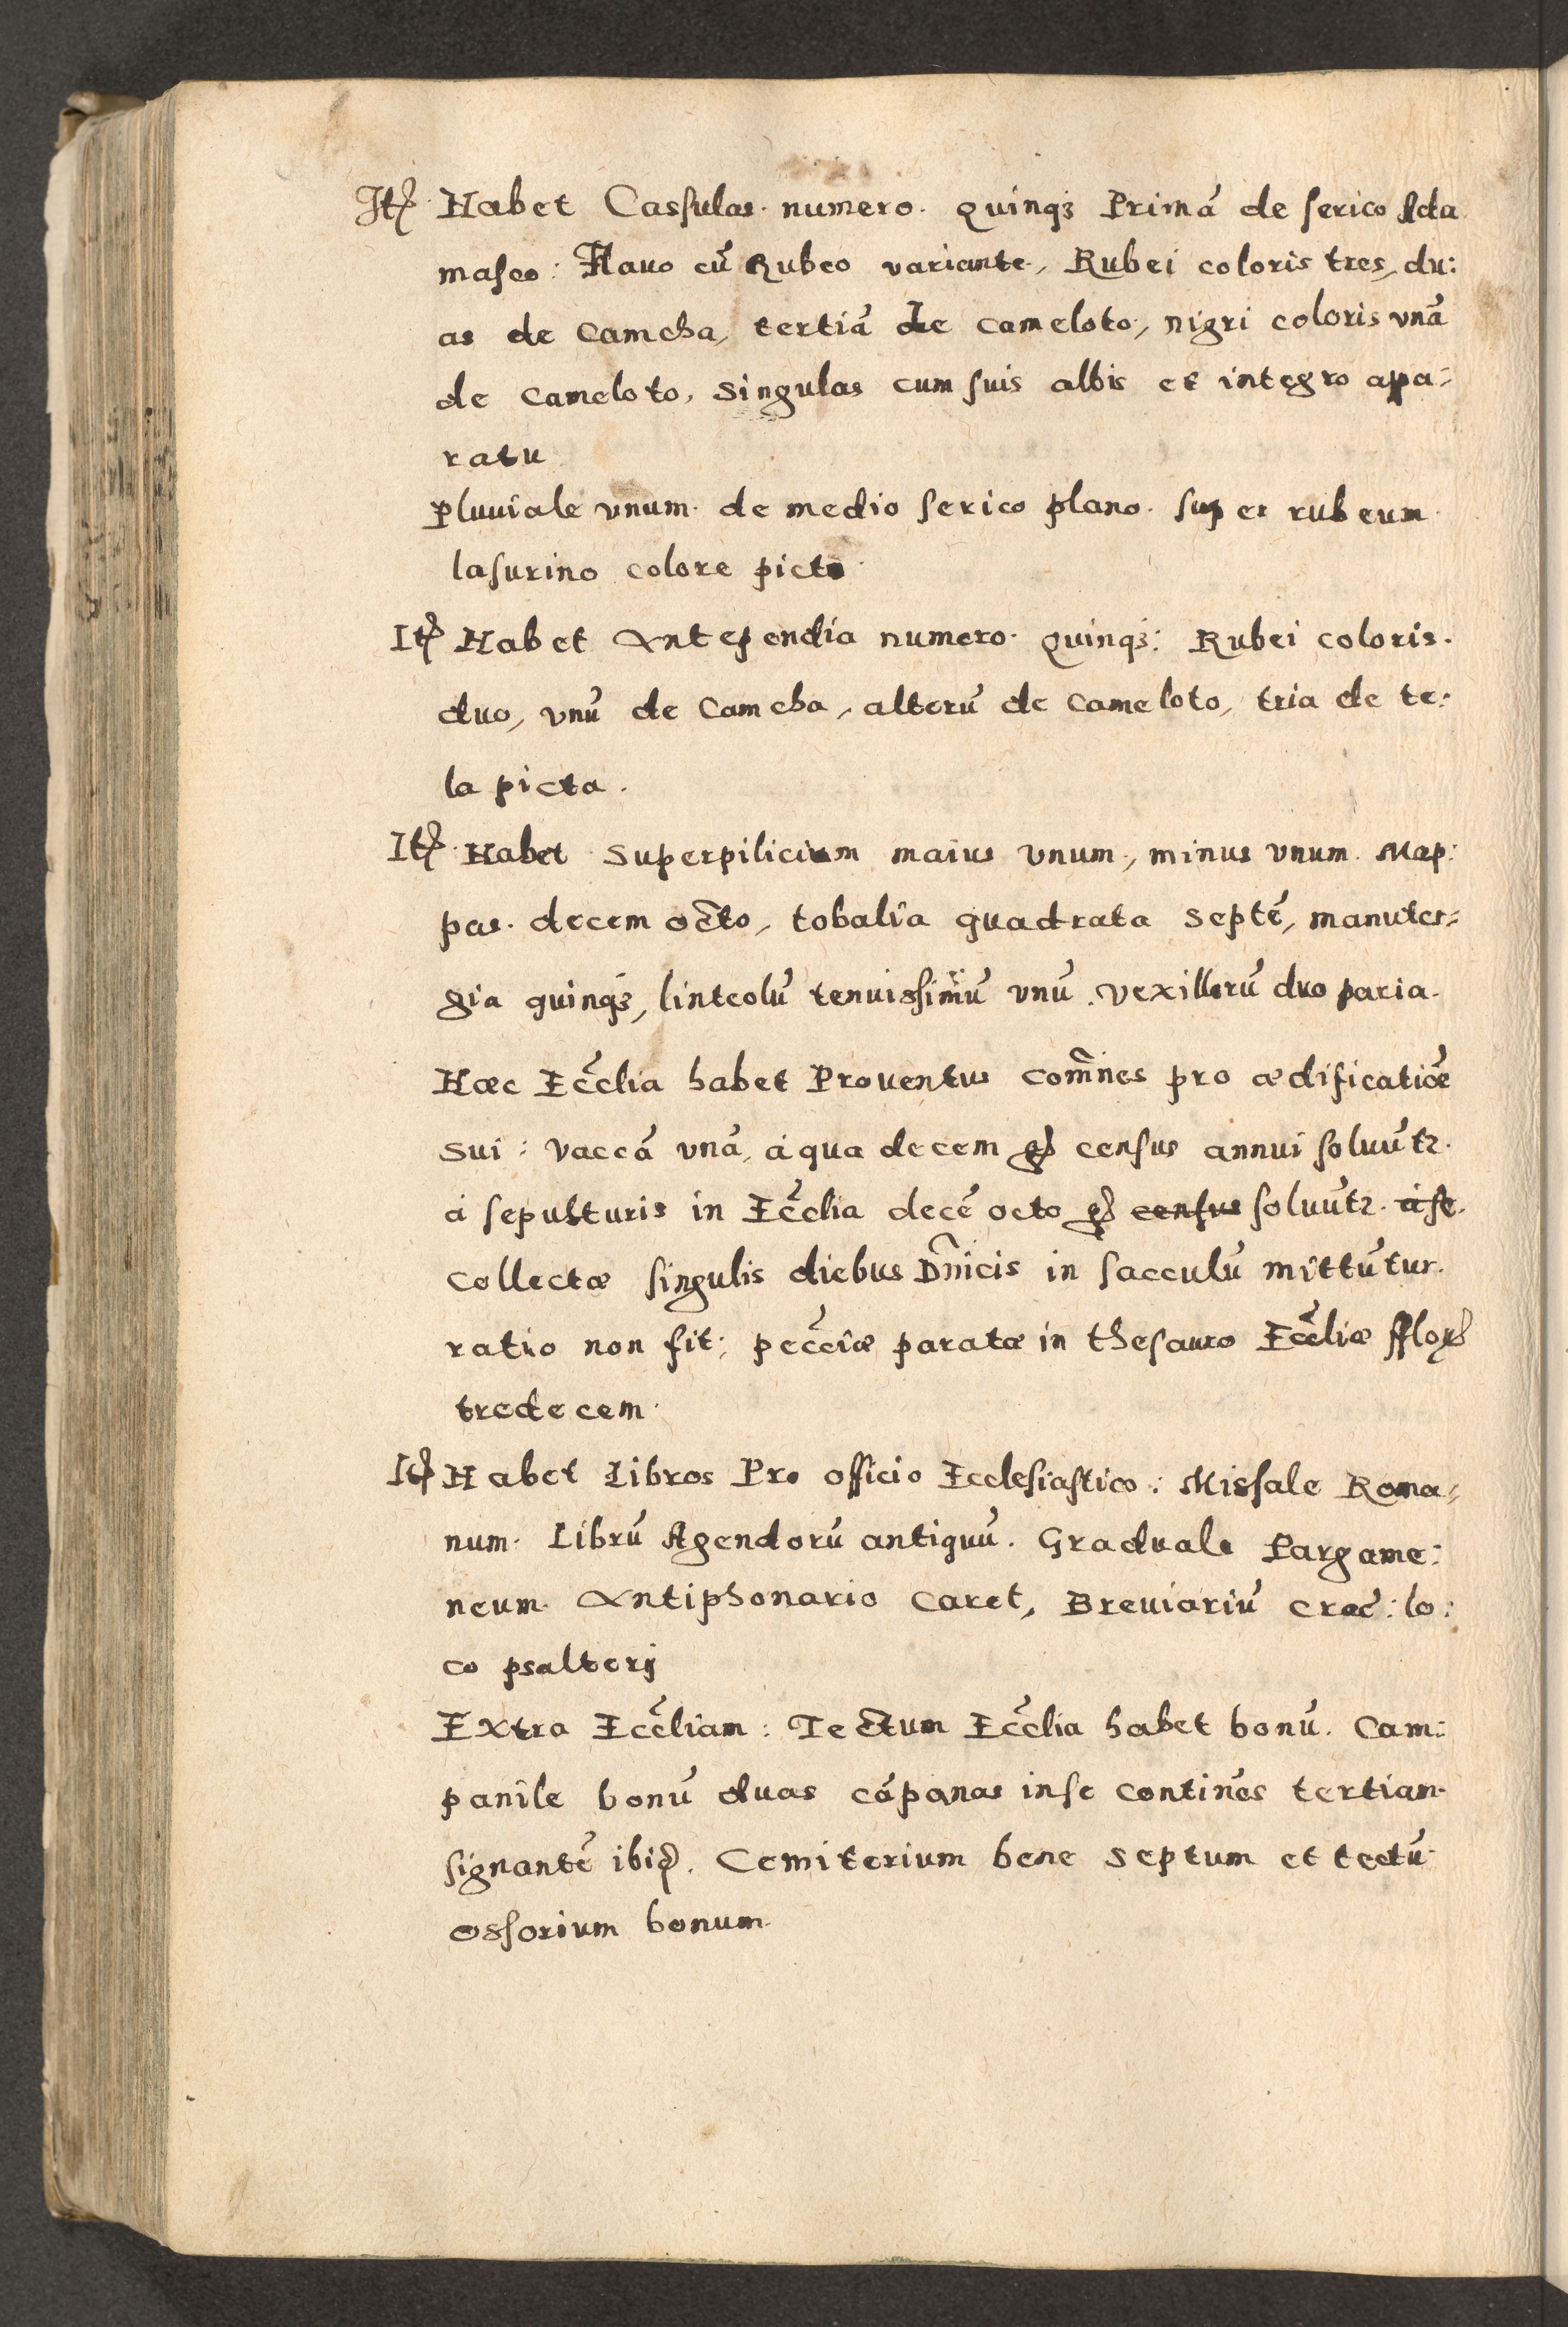 Itꝭ Habet Cassulas numero quinqꝫ Primā de serico Ada
masco: Flauo cū Rubeo variante, Rubei coloris tres, du:
as de Camcha, tertiā de Cameloto, nigri coloris vnā
de Cameloto, singulas cum suis albis et integro apa:
ratu
Pluuiale vnum de medio serico plano super rubeum
lasurino colore picto
Itꝭ Habet Antependia numero quinqꝫ: Rubei coloris
duo, vnū de Camcha, alterū de Cameloto, tria de te:
la picta.
Itꝭ Habet Superpilicium maius vnum, minus vnum. Map:
pas decem octo, tobalia quadrata septē, manuter:
gia quinqꝫ, linteolū tenuissimū vnū. vexillorū duo paria.
Hæc Eccl̃ia habet Prouentus com̃nes pro ædificatiōe
sui: vaccā vnā, à qua decem gꝭ census annui soluūtr.
à sepulturis in Eccl̃ia decē octo gꝭ ~~census~~ soluūtr. ~~à se~~
Collectæ singulis diebus Dn̄icis in sacculū mittūtur.
ratio non fit; pecc̃iæ paratæ in thesauro Eccl̃iæ fflorꝭ
tredecem.
Itꝭ Habet Libros Pro officio Ecclesiastico: Missale Roma:
num. Librū Agendorū antiquū. Graduale Pargame:
neum. Antiphonario caret, Breuiariū Crac̃: lo:
co psalterij
Extra Eccl̃iam: Tectum Eccl̃ia habet bonū. Cam:
panile bonū duas cāpanas in se continēs tertian
signantē ibiꝗ. Cemiterium bene septum et tectū
ossorium bonum.